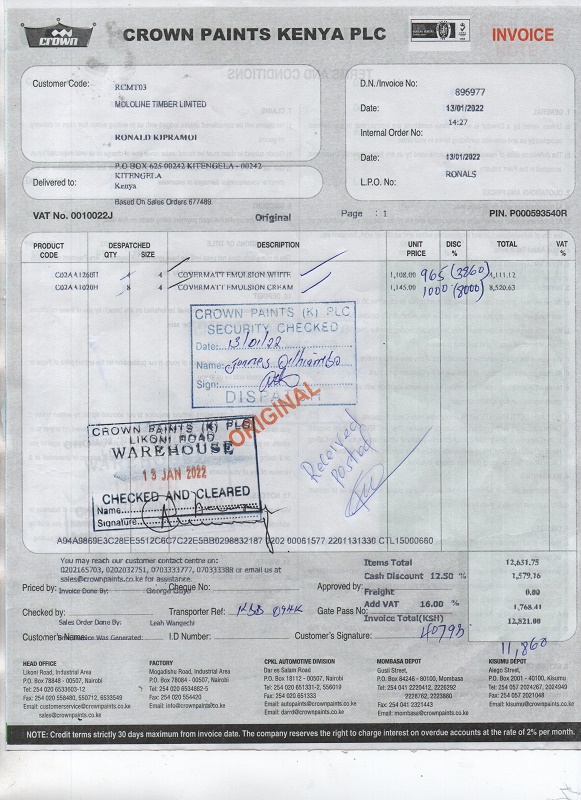 crown
CROWN PAINTS KENYA PLC
INVOICE
Customer Code:
RCMT03
MOLOLINE TIMBER LIMITED
RONALD KIPRAMOI
P.O BOX 625 00242 KITENGELA - 00242
KITENGELA
Delivered to:
Kenya
Based On Sales Orders 677489.
D.N./Invoice No:
896977
Date:
13/01/2022
14:27
Internal Order No:
Date:
13/01/2022
L.P.O. No:
RONALS
VAT No. 0010022J
Original
Page : 1
PIN. P000593540R
PRODUCT CODE
DESPATCHED
QTY SIZE
DESCRIPTION
UNIT PRICE
DISC %
TOTAL
VAT %
4 4 COVERMATT EMULSION WHITE 1,108.00 965 (3860) 4,111.12
8 4 COVERMATT EMULSION CREAM 1,145.00 1000 (8000) 8,520.63
CROWN PAINTS (K) PLC
SECURITY CHECKED
Date: 13/01/22
Name:
Sign:
ORIGINAL
CROWN PAINTS (K) PLC
LIKONI ROAD
WAREHOUSE
13 JAN 2022
CHECKED AND CLEARED
Name
Signature
Received
Posted
You may reach our customer contact centre on:
0202165703, 0202032751, 0703333777, 070333388 or email us at
sales@crownpaints.co.ke for assistance.
Items Total 12,631.75
Cash Discount 12.50 % 1,579.16
Freight 0.00
Add VAT 16.00 % 1,768.41
Invoice Total(KSH) 12,821.00
Priced by:
Invoice Done By:
Cheque No:
Approved by:
Checked by:
Sales Order Done By:
Leah Wangechi
Transporter Ref:
Gate Pass No:
40793
Customer's Name:
Invoice Was Generated:
I.D Number:
Customer's Signature:
11,860
HEAD OFFICE
Likoni Road, Industrial Area
P.O. Box 78848 - 00507, Nairobi
Tel: 254 020 6533603-12
Fax: 254 020 558480, 550712, 6533549
Email: customerservice@crownpaints.co.ke
sales@crownpaints.co.ke
FACTORY
Mogadishu Road, Industrial Area
P.O. Box 78084 - 00507, Nairobi
Tel: 254 020 6534882-5
Fax: 254 020 554420
Email: info@crownpaints.co.ke
CPKL AUTOMOTIVE DIVISION
Dar es Salam Road
P.O. Box 18112 - 00507, Nairobi
Tel: 254 020 651331-2, 556019
Fax: 254 020 651333
Email: autopaints@crownpaints.co.ke
Email: darrd@crownpaints.co.ke
MOMBASA DEPOT
Gusii Street,
P.O. Box 84246 - 80100, Mombasa
Tel: 254 041 2220412, 2226292
2226702, 2223880
Fax: 254 041 2321443
Email: mombasa@crownpaints.co.ke
KISUMU DEPOT
Alego Street,
P.O. Box 2001 - 40100, Kisumu
Tel: 254 057 2024267, 2024949
Fax: 254 057 2021048
Email: kisumu@crownpaints.co.ke
NOTE: Credit terms strictly 30 days maximum from invoice date. The company reserves the right to charge interest on overdue accounts at the rate of 2% per month.